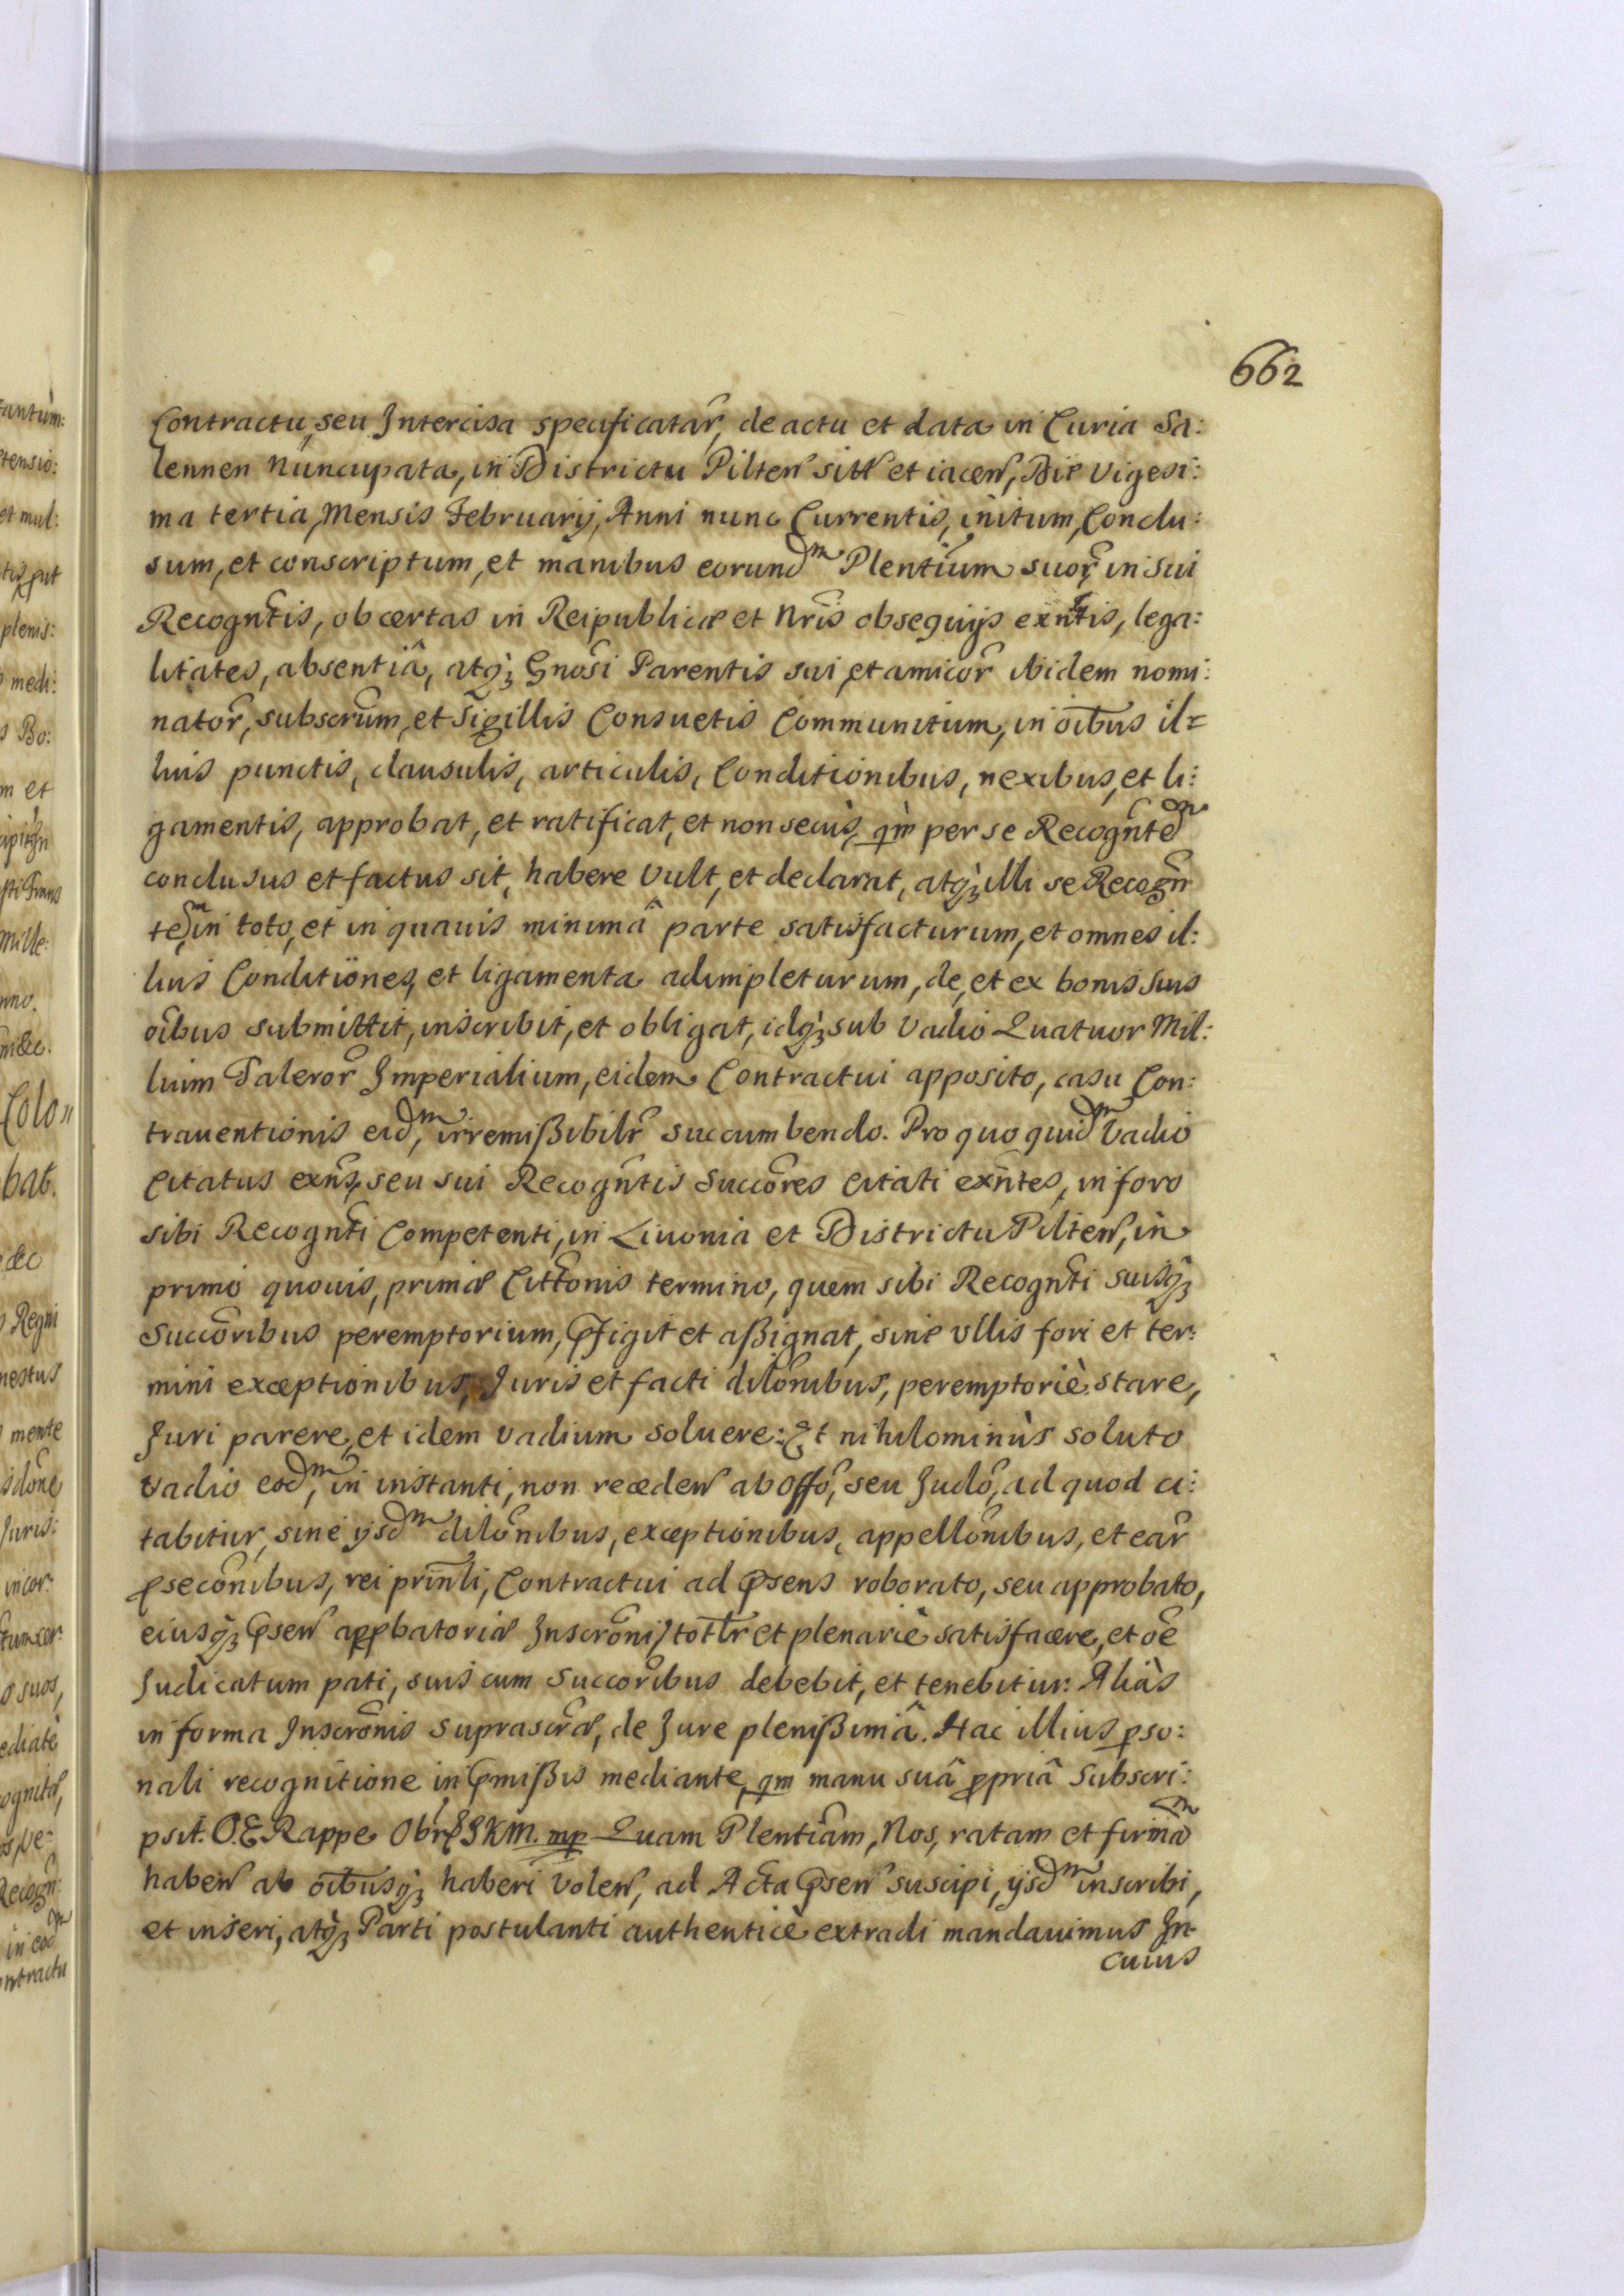 662
Contractu, seu Intercisa specificatar̃, de actu et data in Curia Sa:
lennen nuncupata, in Districtu Pilten̄ sitt̃ et iacen̄, Die Vigesi:
ma tertia, Mensis February, Anni nunc Currentis, initum, Conclu:
sum, et conscriptum, et manibus eorundm Plentium suor̃, in sui
Recogntis, ob certas in Reipublicæ et Nr̃is obsequijs exñtis, lega:
litates, absentiâ, atq3 Gnosi Parentis sui, et amicor̃ ibidem nomi:
nator̃, subscrũm, et Sigillis Consuetis Communitum, in oĩbus il=
lius punctis, clausulis, articulis, Conditionibus, nexibus, et li:
gamentis, approbat, et ratificat, et non secùs, qm̃ per se Recogntedm
conclusus et factus sit, habere vult, et declarat, atq3 illi se Recogñ
tem, in toto, et in quauis minimâ parte satisfacturum, et omnes il:
lius Conditiones, et ligamenta adimpleturum, de, et ex bonis suis
oĩbus submittit, inscribit, et obligat, idq3 sub Vadio Quatuor Mil:
lium Taleror̃ Imperialium, eidem Contractui apposito, casu Con:
trauentionis eidm, irremißibilr̃ succumbendo. Pro quo quidm Vadio
Citatus exñs, seu sui Recogntis Succõres citati exñtes, in foro
sibi Recognti Competenti, in Liuonia et Districtu Pilten̄, in
primo quouis, primæ Cittõnis termino, quem sibi Recognti suisq3
Succõribus peremptorium, p̃figit et aßignat, sine vllis fori et ter:
mini exceptionibus, Juris et facti dilõnibus, peremptoriè stare,
Juri parere, et idem vadium soluere: Et nihilominùs soluto
vadio eodm, in instanti, non receden̄ ab Offõ, seu Judõ, ad quod ci:
tabitur, sine ijsdm dilõnibus, exceptionibus, appellõnibus, et ear̃
p̱secõnibus, rei prinl̃i, Contractui ad p̃sens roborato, seu approbato,
eiusq3 p̃sen̄ app̱batoriæ Inscrõni, tottlr̃ et plenariè satisfacere, et oẽ
Judicatum pati, suis cum Succõribus debebit, et tenebitur: Aliàs
in forma Inscrõnis suprascræ̃, de Jure plenißimâ. Hac illius p̱so:
nali recognitione in p̃mißis mediante, qm̃ manu suâ p̱priâ Subscri:
psit. O. E. Rappe JKM. mp Quam Plentiam, Nos, ratam et firmãm
haben̄ ab oĩbusq3 haberi volen̄, ad Acta p̃sen̄ suscipi, ijsdm inscribi,
et inseri, atq3 Parti postulanti authenticè extradi mandauimus In
cuius